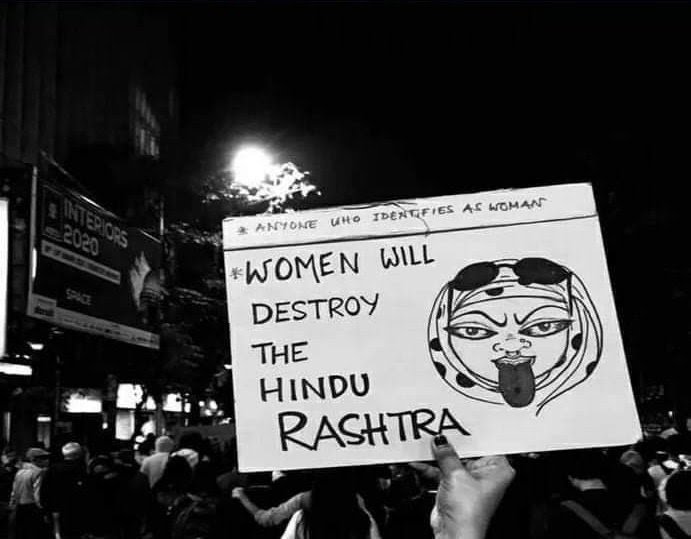 INTERIORS
2020
SPACE
* ANYONE WHO IDENTIFIES AS WOMAN
*WOMEN WILL
DESTROY
THE
HINDU
RASHTRA